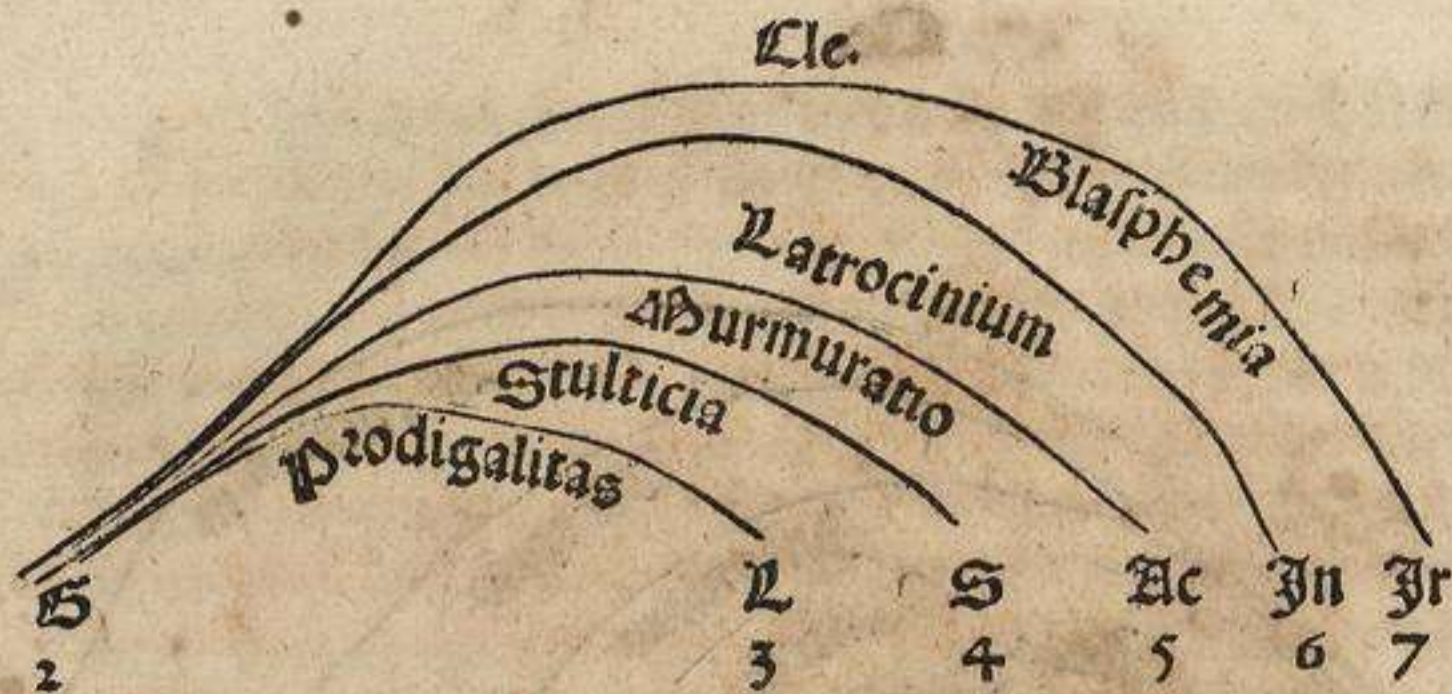 Cle.
Blasphemia
Latrocinium
Murmuratio
Stulticia
Prodigalitas
G L S Ac In Ir
2 3 4 5 6 7